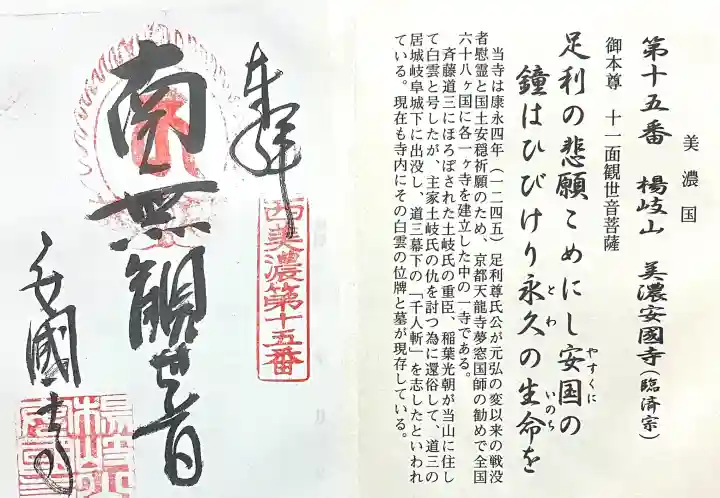 美濃国
第十五番 楊岐山 美濃安國寺(臨済宗)
御本尊 十一面観世音菩薩
足利の悲願こめにし安国の
やすくに
鐘はひびけり永久の生命を
とわ
いのち
当寺は康永四年(一二四五)足利尊氏公が元弘の変以来の戦没
者慰霊と国土安穏祈願のため、京都天龍寺夢窓国師の勧めで全国
六十八ヶ国に各一ヶ寺を建立した中の一寺である。
斉藤道三にほろぼされた土岐氏の重臣、稲葉光朝が当山に住し
て白雲と号したが、主家土岐氏の仇を討つ為に還俗して、道三の
居城岐阜城下に出没し、道三幕下の「千人斬」を志したといわれ
ている。現在も寺内にその白雲の位牌と墓が現存している。
奉拝
西美濃第十五番
南無観世音
安國寺